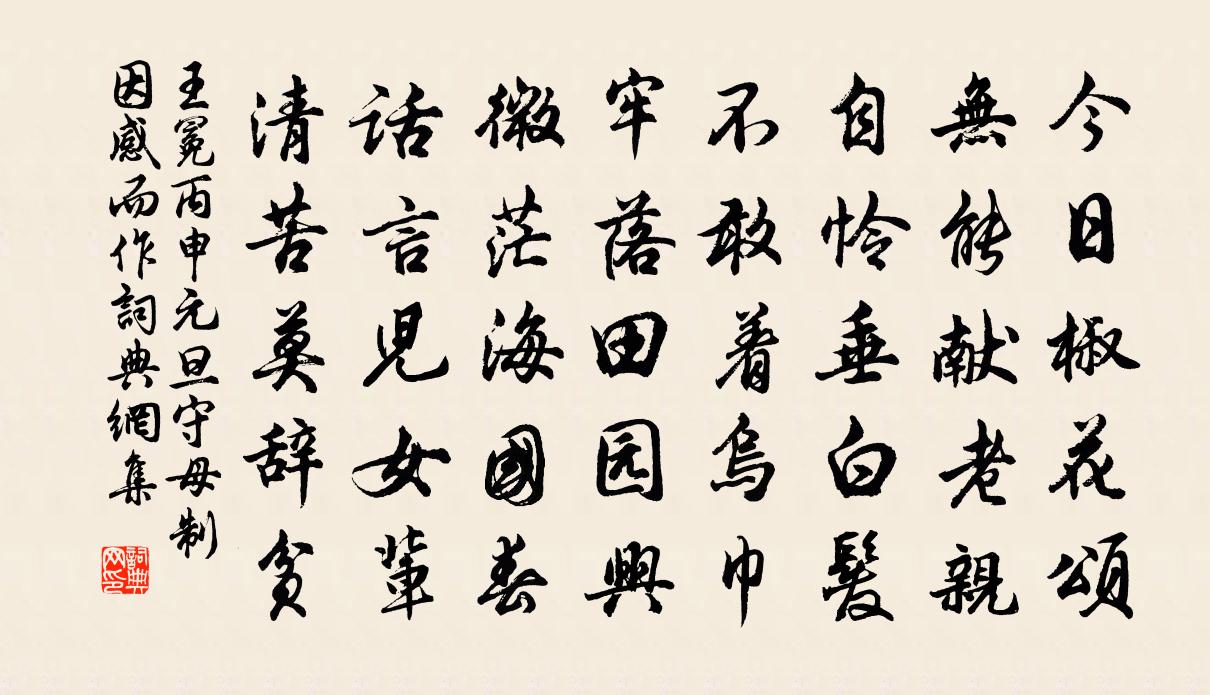 今日椒花頌
無能献老親
自怜垂白髮
不敢着烏巾
牢落田园興
微茫海國春
话言児女輩
清苦莫辞贫
王冕丙申元旦守母制
因感而作詞典網集
詞典
网印